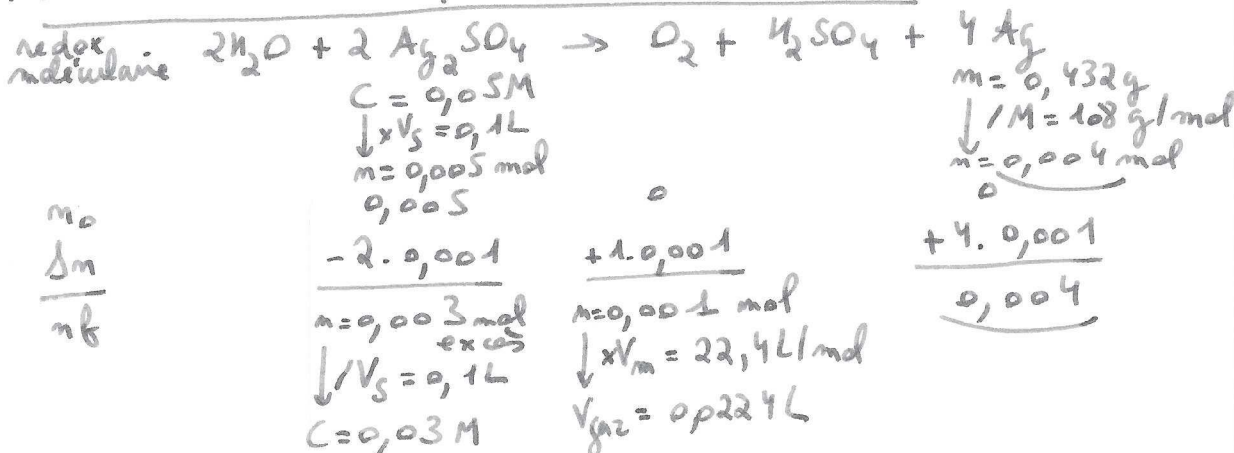 redox moléculaire. 2H₂O + 2 Ag₂SO₄ → O₂ + H₂SO₄ + 4 Ag
C = 0,05M m = 0,432g
↓ x Vs = 0,1L ↓ / M = 108 g/mol
n = 0,005 mol n = 0,004 mol
n₀ 0,005 0 0
Δn - 2. 0,001 + 1. 0,001 + 4. 0,001
nf n = 0,003 mol excès n = 0,001 mol 0,004
↓ / Vs = 0,1L ↓ x Vm = 22,4L/mol
C = 0,03 M Vgaz = 0,0224L